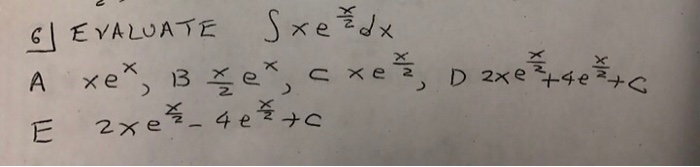 6] EVALUATE ∫ x e^{x/2} dx
A xe^x, B x/2 e^x, C x e^{x/2}, D 2xe^{x/2}+4e^{x/2}+C
E 2xe^{x/2} - 4e^{x/2} +C